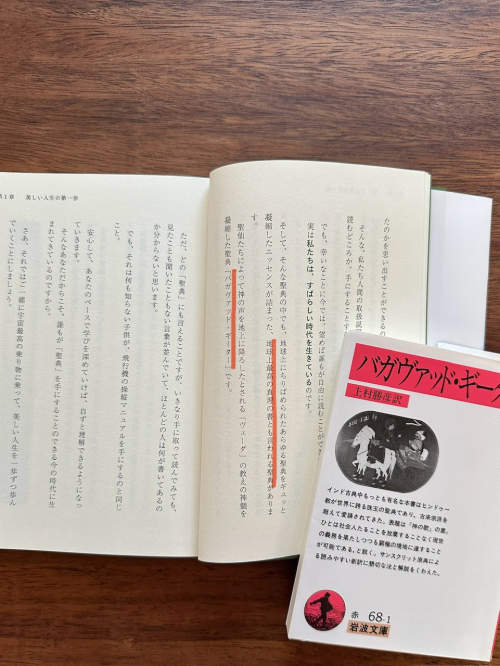 たのかを思い出すことができるの
そんな、私たち人間の取扱説
読むどころか、手にすること
でも、幸いなことに今では、望めば誰もが自由に読むことができ
実は私たちは、すばらしい時代を生きているのです。
そして、そんな聖典の中でも、地球上にちりばめられたあらゆる聖典をギュッと
凝縮したエッセンスが詰まった、地球上最高の真理の書とも言われる聖典がありま
す。
聖仙たちによって神の声を地上に降ろしたとされる「ヴェーダ」の教えの神髄を
凝縮した聖典「バガヴァッド・ギーター」です。
第1章 美しい人生の第一歩
ただ、どの「聖典」にも言えることですが、いきなり手に取って読んでみても、
見たことも聞いたこともない言葉が並んでいて、ほとんどの人は何が書いてあるの
か分からないと思います。
でも、それは何も知らない子供が、飛行機の操縦マニュアルを手にするのと同じ
こと。
安心して、あなたのペースで学びを深めていけば、自ずと理解できるようになっ
ていきます。
そんなあなただからこそ、誰もが「聖典」を手にすることのできる今の時代に生
まれてきているのですから。
さあ、それではご一緒に宇宙最高の乗り物に乗って、美しい人生を一歩ずつ歩ん
でいくことにしましょう。
バガヴァッド・ギー
上村勝彦訳
インド古典中もっとも有名な本書はヒンドゥー
教が世界に誇る珠玉の聖典であり、古来宗派を
超えて愛誦されてきた。表題は「神の歌」の意。
ひとは社会人たることを放棄することなく現世
の義務を果たしつつも窮極の境地に達すること
が可能である、と説く。サンスクリット原典によ
る読みやすい新訳に懇切な注と解説をくわえた。
赤 68-1
岩波文庫